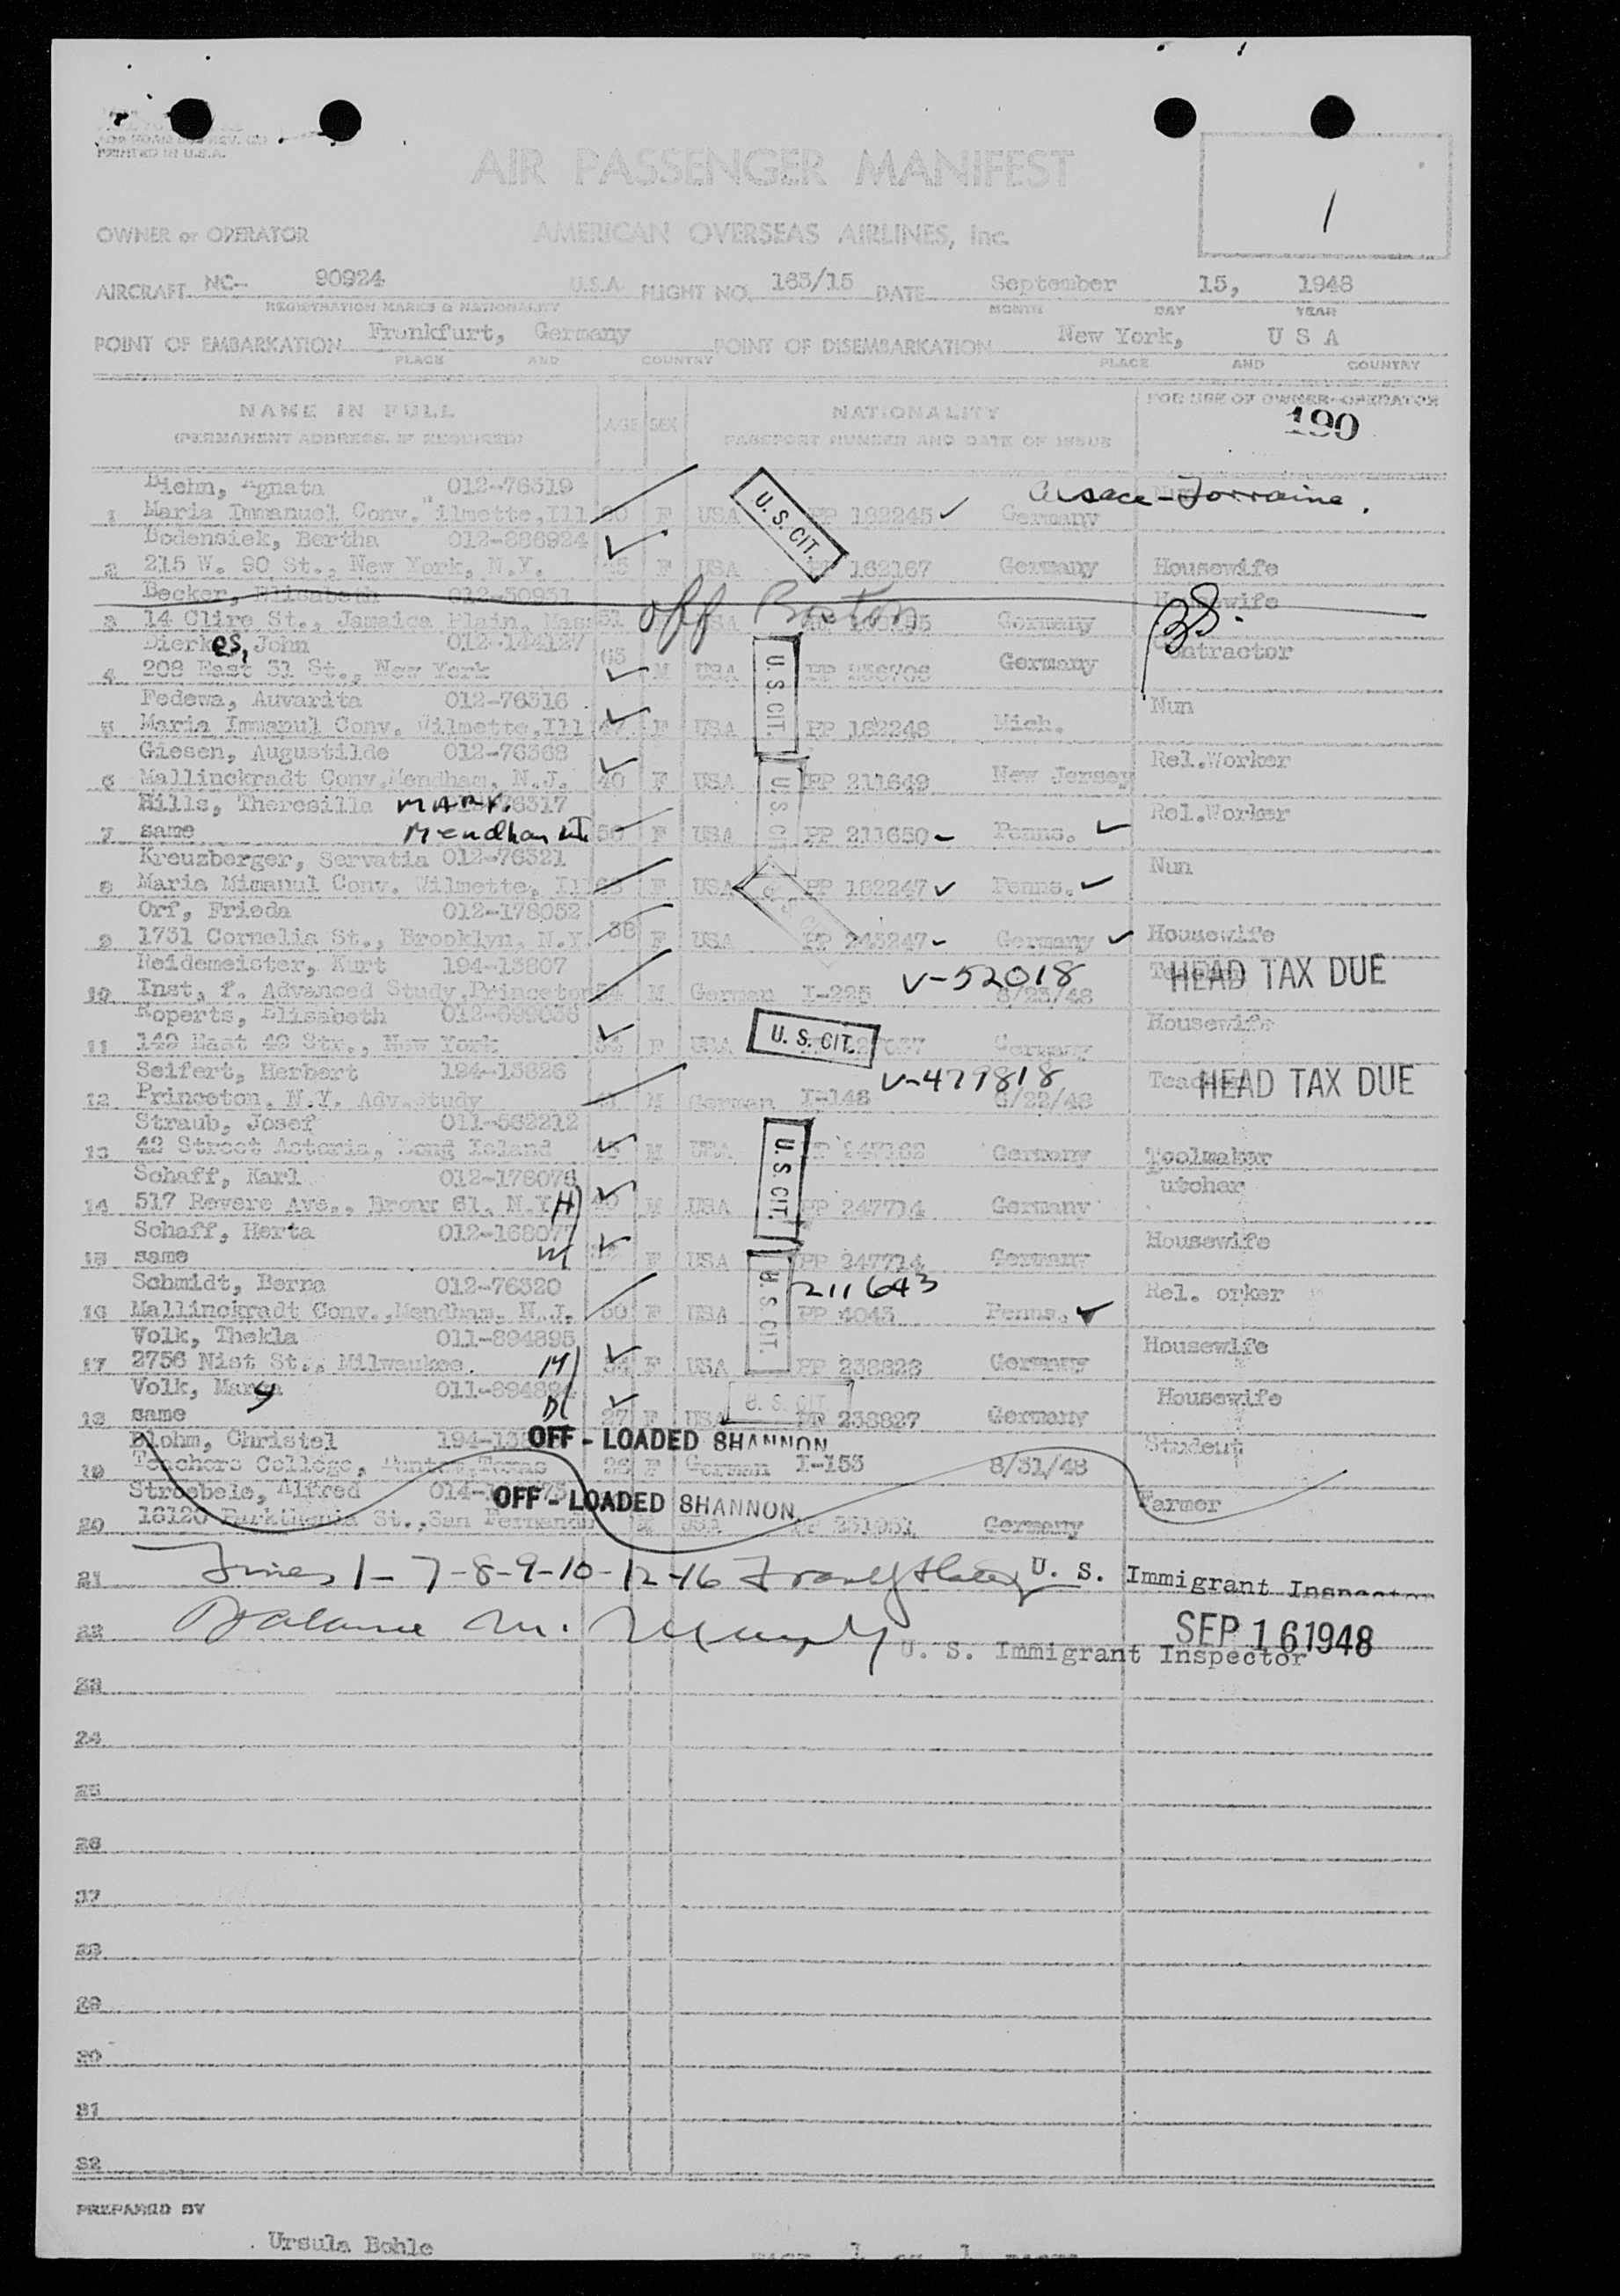 PRINTED IN U.S.A.
AIR PASSENGER MANIFEST
1
OWNER or OPERATOR AMERICAN OVERSEAS AIRLINES, Inc.
AIRCRAFT NC- 90924 U.S.A. FLIGHT NO. 163/15 DATE September 15, 1948
REGISTRATION MARKS & NATIONALITY MONTH DAY YEAR
POINT OF EMBARKATION Frankfurt, Germany POINT OF DISEMBARKATION New York, U S A
PLACE AND COUNTRY PLACE AND COUNTRY
NAME IN FULL AGE SEX NATIONALITY FOR USE OF OWNER-OPERATOR
(PERMANENT ADDRESS, IF REQUIRED) PASSPORT NUMBER AND DATE OF ISSUE 190
Diehn, Agnata 012-76319 Alsace-Lorraine.
1 Maria Immanuel Conv. Wilmette, Ill F USA U. S. CIT. PP 182245 Germany
Bodensiek, Bertha 012-886924
2 215 W. 90 St., New York, N.Y. F USA 162167 Germany Housewife
Becker, Elisabeth 012-50931 off Boston Housewife
3 14 Clire St., Jamaica Plain, Mass 51 Germany
Dierkes, John 012-144127 63 Contractor
4 208 East 31 St., New York M USA U. S. CIT. PP Germany
Fedewa, Auvarita 012-76316 Nun
5 Maria Immanul Conv. Wilmette, Ill 47 F USA PP 182248 Mich.
Giesen, Augustilde 012-76368 Rel.Worker
6 Mallinckradt Conv.Mendham, N.J. 40 F USA U. S. CIT. PP 211649 New Jersey
Hills, Theresilla MARY. 76317 Rel.Worker
7 same Mendham NJ 56 F USA PP 211650 Penns.
Kreuzberger, Servatia 012-76321 Nun
8 Maria Mimanul Conv. Wilmette, Ill F USA PP 182247 Penns.
Orf, Frieda 012-178052 38
9 1731 Cornelia St., Brooklyn, N.Y. F USA PP 245247 Germany Housewife
Reidemeister, Kurt 194-13807 V-52018 HEAD TAX DUE
10 Inst. f. Advanced Study,Princeton M German I-225 8/23/48
Roperts, Elisabeth 012-899036 Housewife
11 149 East 49 Str., New York F USA U. S. CIT. Germany
Seifert, Herbert 194-13826 V-479818 Teacher HEAD TAX DUE
12 Princeton, N.Y. Adv.Study M German I-148 6/22/48
Straub, Josef 011-562212
13 42 Street Astoria, Long Island M USA U. S. CIT. PP 247162 Germany Toolmaker
Schaff, Karl 012-178076 utcher
14 517 Revere Ave., Bronx 61, N.Y. H 40 M USA PP 247714 Germany
Schaff, Herta 012-168077 Housewife
15 same W F USA PP 247714 Germany
Schmidt, Berna 012-76320 211643 Rel. orker
16 Mallinckradt Conv.,Mendham, N.J. 50 F USA U. S. CIT. PP 4043 Penns.
Volk, Thekla 011-894895 Housewife
17 2756 Nist St., Milwaukee. M 54 F USA PP 238828 Germany
Volk, Mary 011-894894 Housewife
18 same D 27 F USA U. S. CIT PP 238827 Germany
Blohm, Christel 194-13 OFF - LOADED SHANNON Student
19 Teachers College, Texas 26 F German I-153 8/31/48
Stroebele, Alfred 014- OFF - LOADED SHANNON. Farmer
20 16120 Parkthenia St.,San Fernando M USA PP 251951 Germany
21 Lines 1-7-8-9-10-12-16 U. S. Immigrant Inspector
22 Balance M. Murphy SEP 16 1948
U. S. Immigrant Inspector
23
24
25
26
27
28
29
30
31
32
PREPARED BY
Ursula Bohle